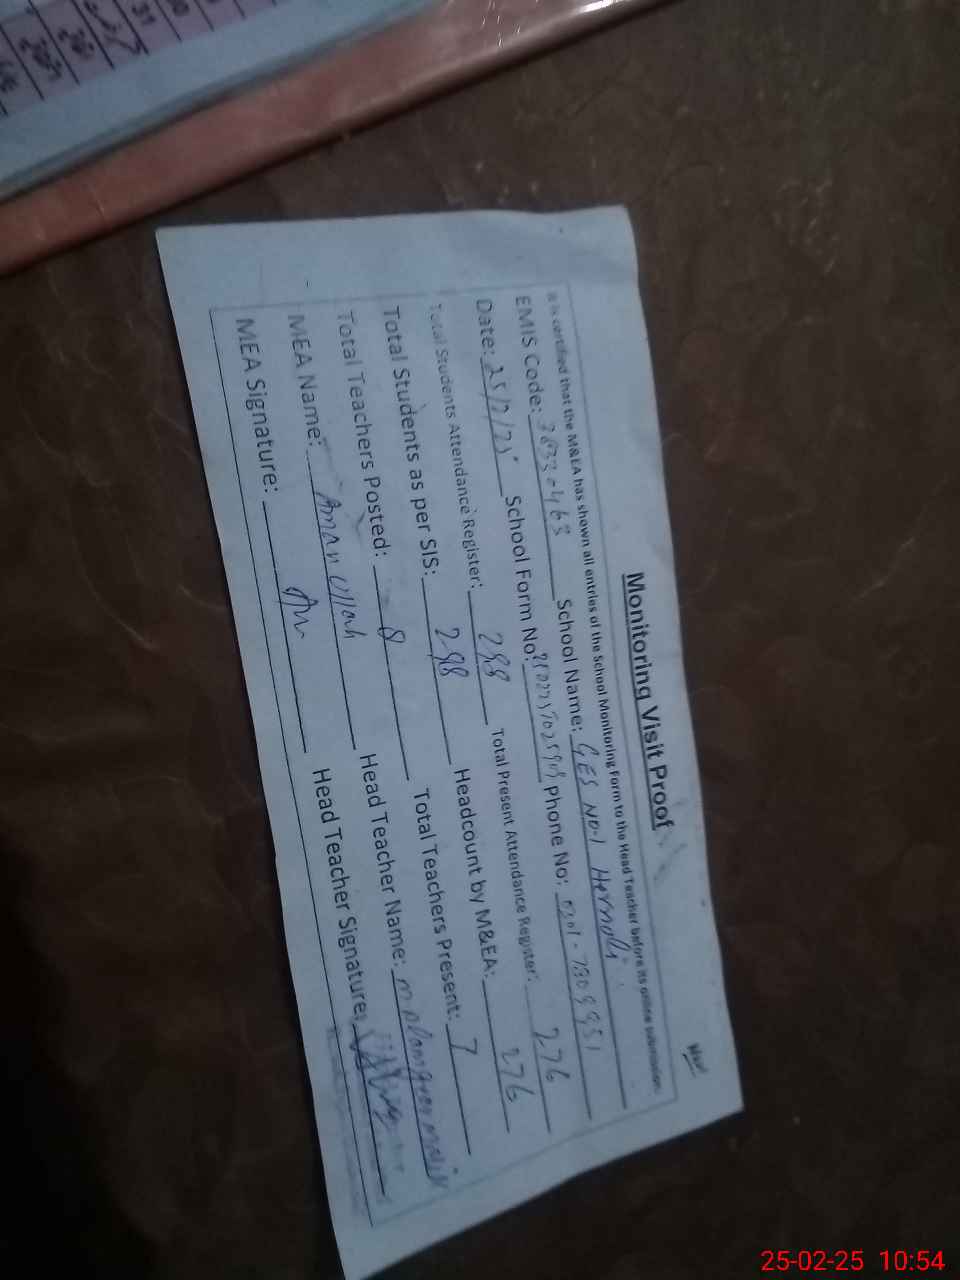 New
Monitoring Visit Proof
It is certified that the M&EA has shown all entries of the School Monitoring Form to the Head Teacher before its online submission.
EMIS Code: 38330463 School Name: GES No-1 Harnoli
Date: 25/2/25 School Form No: Phone No: 0301-7809951
Total Students Attendance Register: 298 Total Present Attendance Register: 276
Total Students as per SIS: 298 Headcount by M&EA: 276
Total Teachers Posted: 8 Total Teachers Present: 7
MEA Name: Aman Ullah Head Teacher Name:
MEA Signature: Head Teacher Signature:
25-02-25 10:54